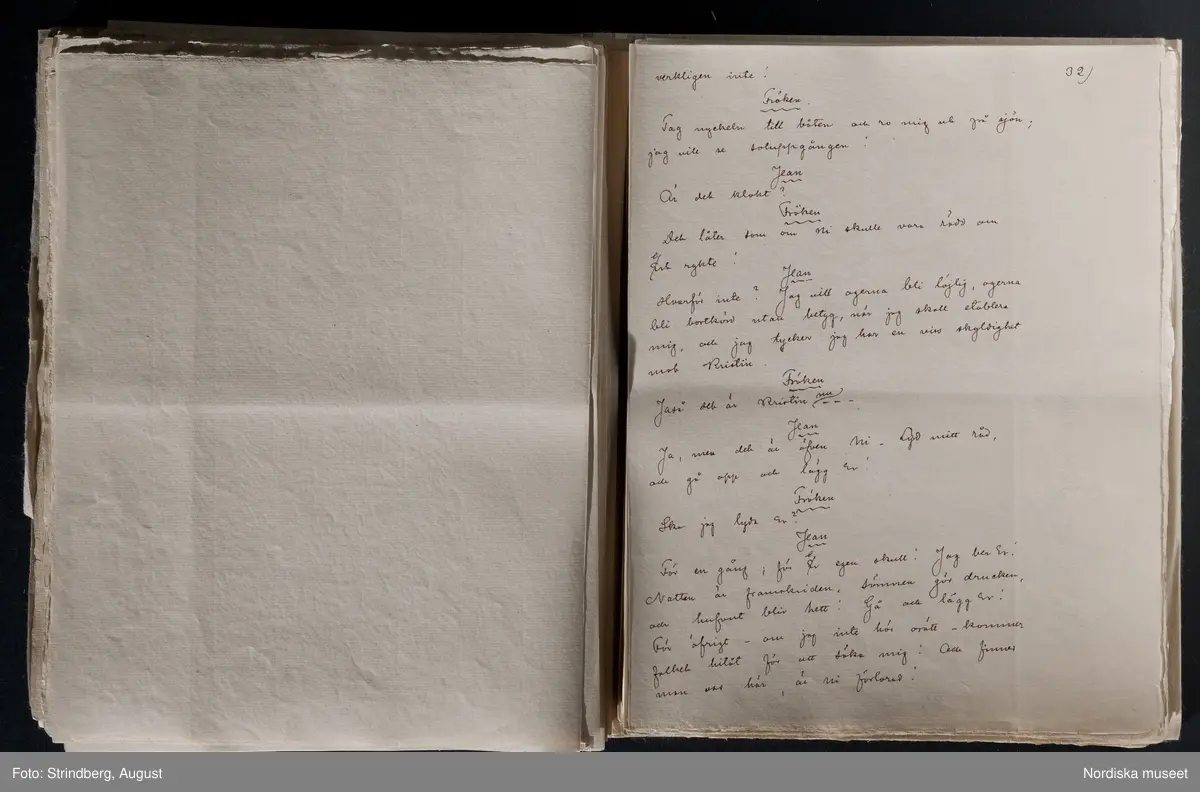 32)
verkligen inte!
Fröken.
Tag nyckeln till båten och ro mig ut på sjön;
jag vill se soluppgången!
Jean
Är det klokt?
Fröken
Det låter som om Ni skulle vara rädd om
Ert rykte!
Jean
Hvarför inte? Jag vill ogerna bli löjlig, ogerna
bli bortkörd utan betyg, när jag skall etablera
mig, och jag tycker jag har en viss skyldighet
mot Kristin.
Fröken
Jaså det är Kristin nu - - -
Jean
Ja, men det är äfven Ni - Lyd mitt råd,
och gå opp och lägg Er!
Fröken
Ska jag lyda Er?
Jean
För en gång; för Er egen skull! Jag ber Er!
Natten är framskriden, sömnen gör drucken,
och hufvut blir hett! Gå och lägg Er!
För öfrigt - om jag inte hör orätt - kommer
folket hitåt för att söka mig! Och finner
man oss här, är Ni förlorad!
Foto: Strindberg, August
Nordiska museet